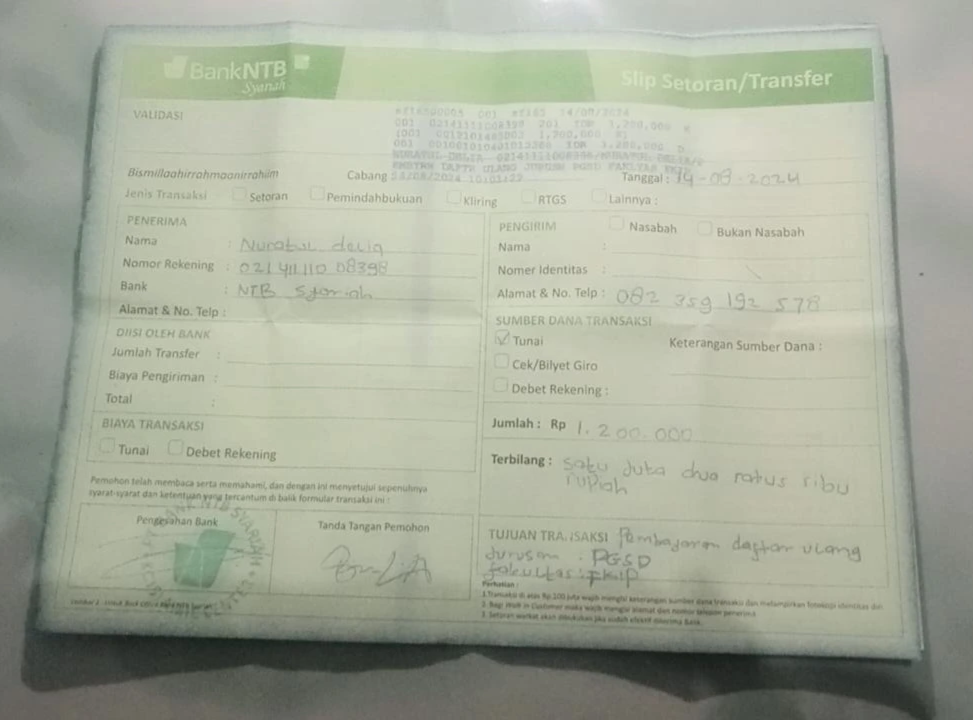 BankNTB
Syariah
Slip Setoran/Transfer
VALIDASI
001 14/08/2024
001 IDR 1,200,000
1,200,000
001 IDR 1,200,000
DAFTAR ULANG JURUSAN PGSD
Bismillaahirrahmaanirrahiim
Cabang
Tanggal : 14-08-2024
Jenis Transaksi Setoran Pemindahbukuan Kliring RTGS Lainnya :
PENERIMA
Nama : Nuratul delia
Nomor Rekening : 021 411110 08398
Bank : NTB Syariah
Alamat & No. Telp :
DIISI OLEH BANK
Jumlah Transfer :
Biaya Pengiriman :
Total :
BIAYA TRANSAKSI
Tunai Debet Rekening
Pemohon telah membaca serta memahami, dan dengan ini menyetujui sepenuhnya
syarat-syarat dan ketentuan yang tercantum di balik formular transaksi ini :
Pengesahan Bank
Tanda Tangan Pemohon
PENGIRIM Nasabah Bukan Nasabah
Nama :
Nomer Identitas :
Alamat & No. Telp : 082 359 192 578
SUMBER DANA TRANSAKSI
Tunai Keterangan Sumber Dana :
Cek/Bilyet Giro
Debet Rekening :
Jumlah : Rp 1.200.000
Terbilang : satu Juta dua ratus ribu
rupiah
TUJUAN TRANSAKSI Pembayaran daftar ulang
Jurusan : PGSD
fakultas : FKIP
Perhatian :
1. Transaksi di atas Rp.100 juta wajib mengisi keterangan sumber dana transaksi dan melampirkan fotokopi identitas diri
2. Bagi Walk in Customer maka wajib mengisi alamat dan nomor telepon penerima
3. Setoran warkat akan dibukukan jika sudah efektif diterima Bank.